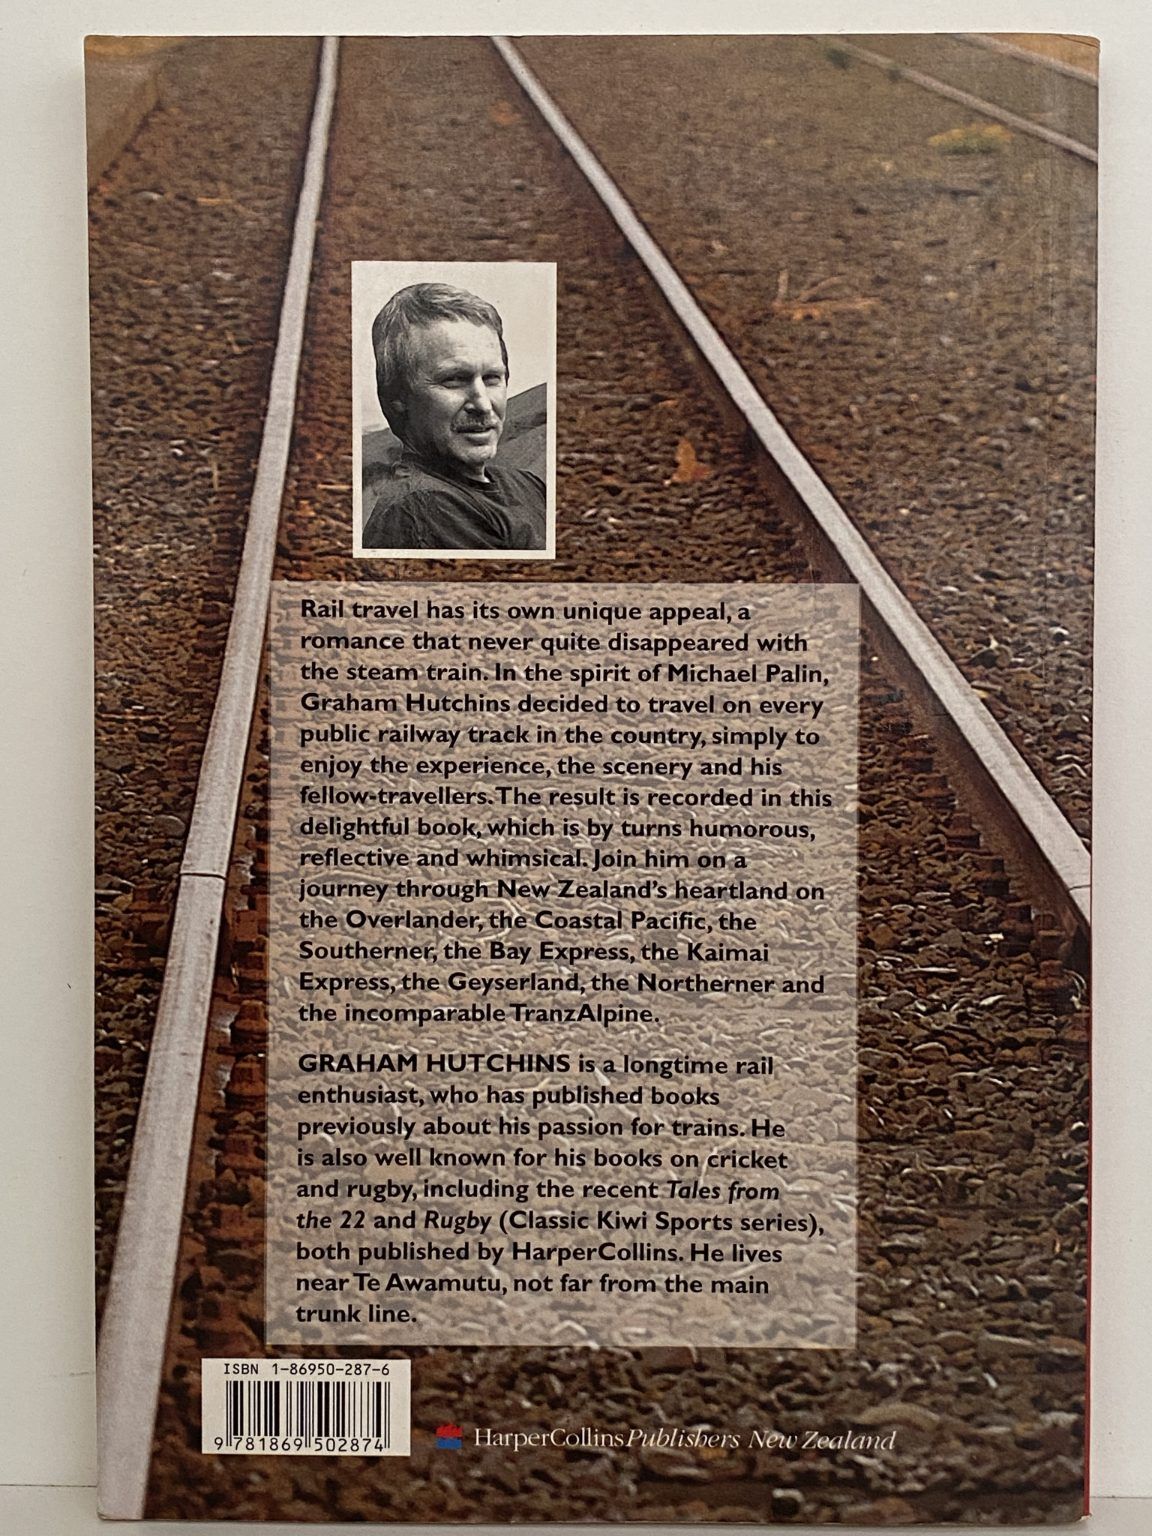 Rail travel has its own unique appeal, a
romance that never quite disappeared with
the steam train. In the spirit of Michael Palin,
Graham Hutchins decided to travel on every
public railway track in the country, simply to
enjoy the experience, the scenery and his
fellow-travellers. The result is recorded in this
delightful book, which is by turns humorous,
reflective and whimsical. Join him on a
journey through New Zealand's heartland on
the Overlander, the Coastal Pacific, the
Southerner, the Bay Express, the Kaimai
Express, the Geyserland, the Northerner and
the incomparable TranzAlpine.
GRAHAM HUTCHINS is a longtime rail
enthusiast, who has published books
previously about his passion for trains. He
is also well known for his books on cricket
and rugby, including the recent Tales from
the 22 and Rugby (Classic Kiwi Sports series),
both published by HarperCollins. He lives
near Te Awamutu, not far from the main
trunk line.
ISBN 1-86950-287-6
9 781869 502874
HarperCollinsPublishers New Zealand